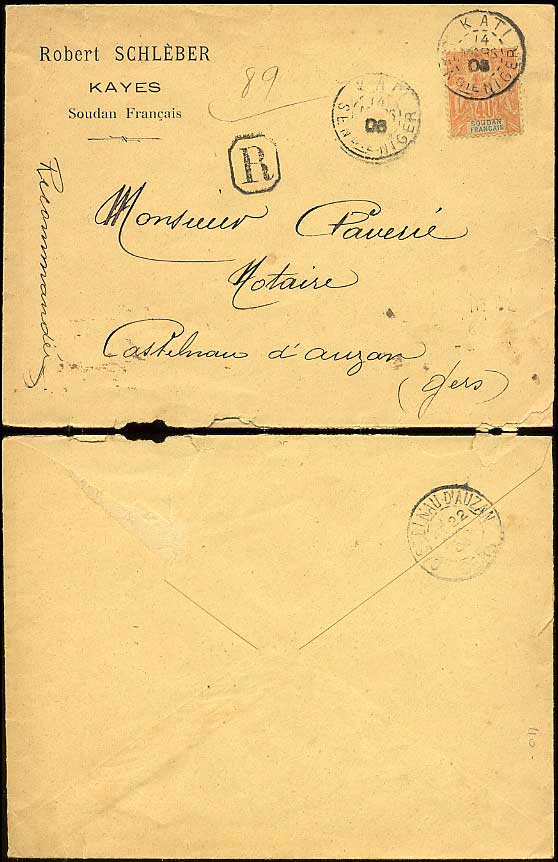 Robert SCHLÈBER
KAYES
Soudan Français
89
KATI
14
03
SEN-GIE NIGER
KATI
14
03
SEN-GIE-NIGER
40
SOUDAN
FRANÇAIS
R
Recommandée
Monsieur Paverié
Notaire
Castelnau d'auzan
(Gers)
CASTELNAU-D'AUZAN
22
40-